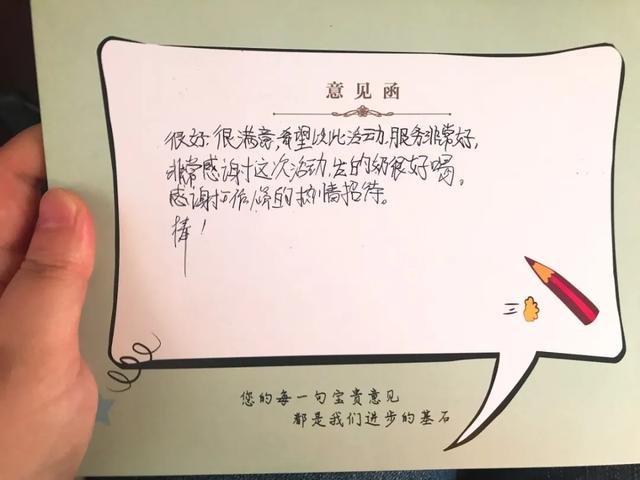 意见函
很好.很满意,希望以此活动.服务非常好,
非常感谢这次活动,发的奶很好喝。
感谢工作人员的热情招待。
棒!
您的每一句宝贵意见
都是我们进步的基石